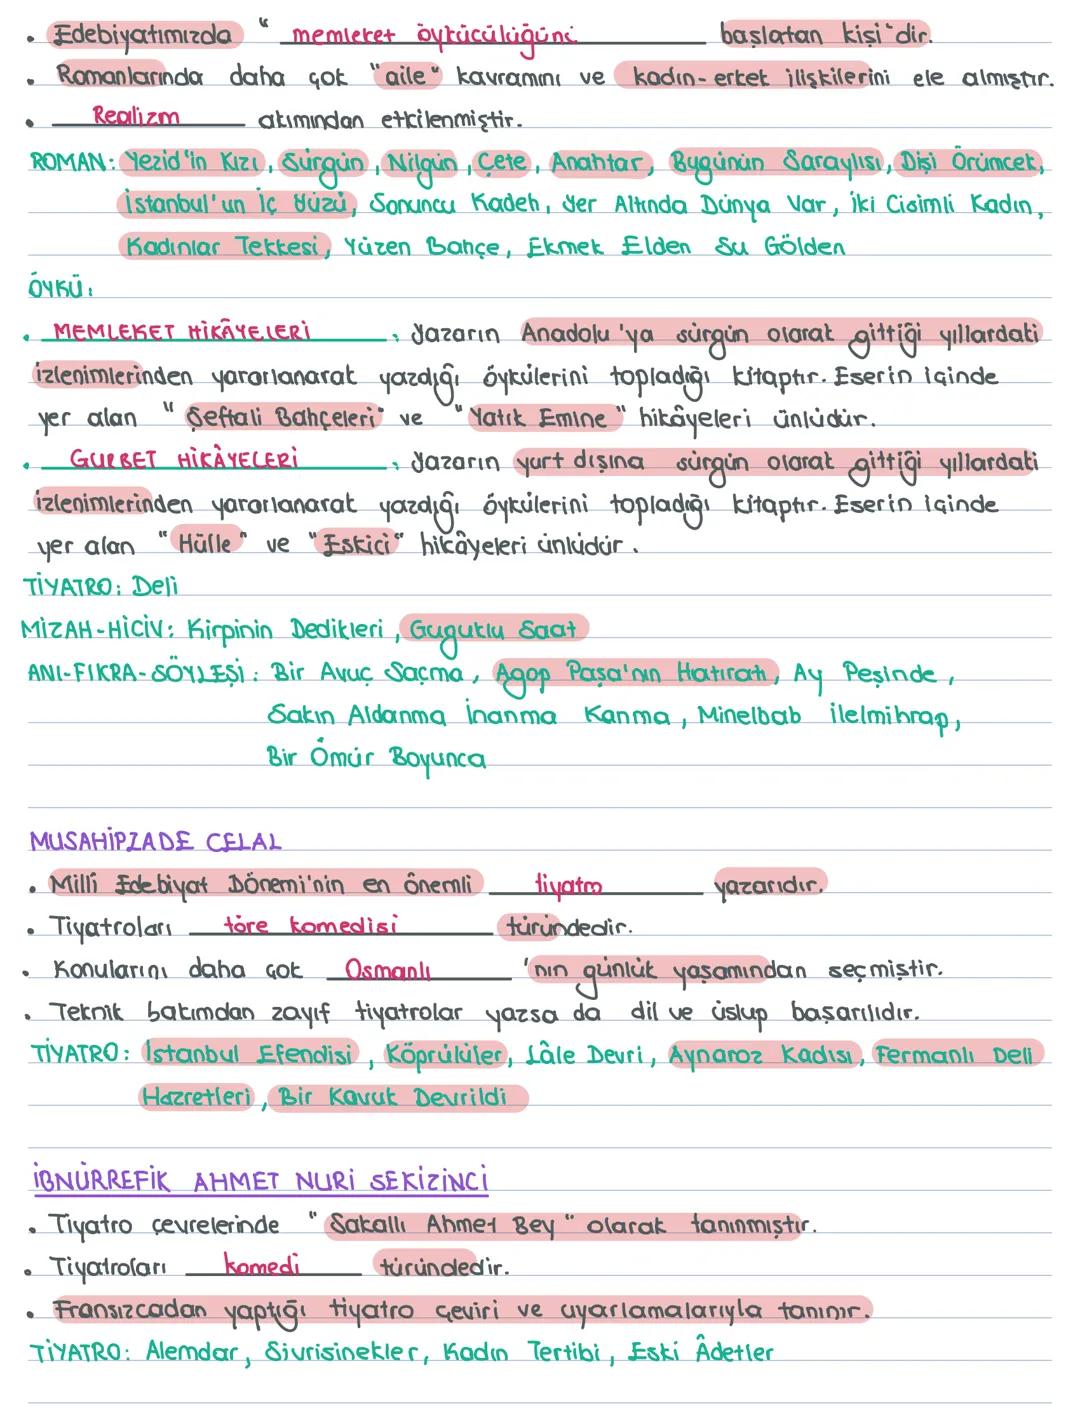 • Edebiyatımızda " memleket öykücülüğünü başlatan kişi" dir.
• Romanlarında daha çok "aile" kavramını ve kadın-erkek ilişkilerini ele almıştır.
• Realizm akımından etkilenmiştir.
ROMAN: Yezid'in Kızı, Sürgün, Nilgün, Çete, Anahtar, Bugünün Saraylısı, Dişi Örümcek,
İstanbul'un İç Yüzü, Sonuncu Kadeh, Yer Altında Dünya Var, İki Cisimli Kadın,
Kadınlar Tekkesi, Yüzen Bahçe, Ekmek Elden Su Gölden
ÖYKÜ:
• MEMLEKET HİKÂYELERİ ; Yazarın Anadolu'ya sürgün olarak gittiği yıllardaki
izlenimlerinden yararlanarak yazdığı öykülerini topladığı kitaptır. Eserin içinde
yer alan " Şeftali Bahçeleri" ve "Yatık Emine" hikâyeleri ünlüdür.
• GURBET HİKÂYELERİ ; Yazarın yurt dışına sürgün olarak gittiği yıllardaki
izlenimlerinden yararlanarak yazdığı öykülerini topladığı kitaptır. Eserin içinde
yer alan "Hülle" ve "Eskici" hikâyeleri ünlüdür.
TİYATRO: Deli
MİZAH-HİCİV: Kirpinin Dedikleri, Guguklu Saat
ANI-FIKRA-SÖYLEŞİ: Bir Avuç Saçma, Agop Paşa'nın Hatıratı, Ay Peşinde,
Sakın Aldanma İnanma Kanma, Minelbab İlelmihrap,
Bir Ömür Boyunca
MUSAHİPZADE CELAL
• Millî Edebiyat Dönemi'nin en önemli tiyatro yazarıdır.
• Tiyatroları töre komedisi türündedir.
• Konularını daha çok Osmanlı 'nın günlük yaşamından seçmiştir.
• Teknik bakımdan zayıf tiyatrolar yazsa da dil ve üslup başarılıdır.
TİYATRO: İstanbul Efendisi, Köprülüler, Lâle Devri, Aynaroz Kadısı, Fermanlı Deli
Hazretleri, Bir Kavuk Devrildi
İBNÜRREFİK AHMET NURİ SEKİZİNCİ
• Tiyatro çevrelerinde " Sakallı Ahmet Bey" olarak tanınmıştır.
• Tiyatroları komedi türündedir.
• Fransızcadan yaptığı tiyatro çeviri ve uyarlamalarıyla tanınır.
TİYATRO: Alemdar, Sivrisinekler, Kadın Tertibi, Eski Âdetler